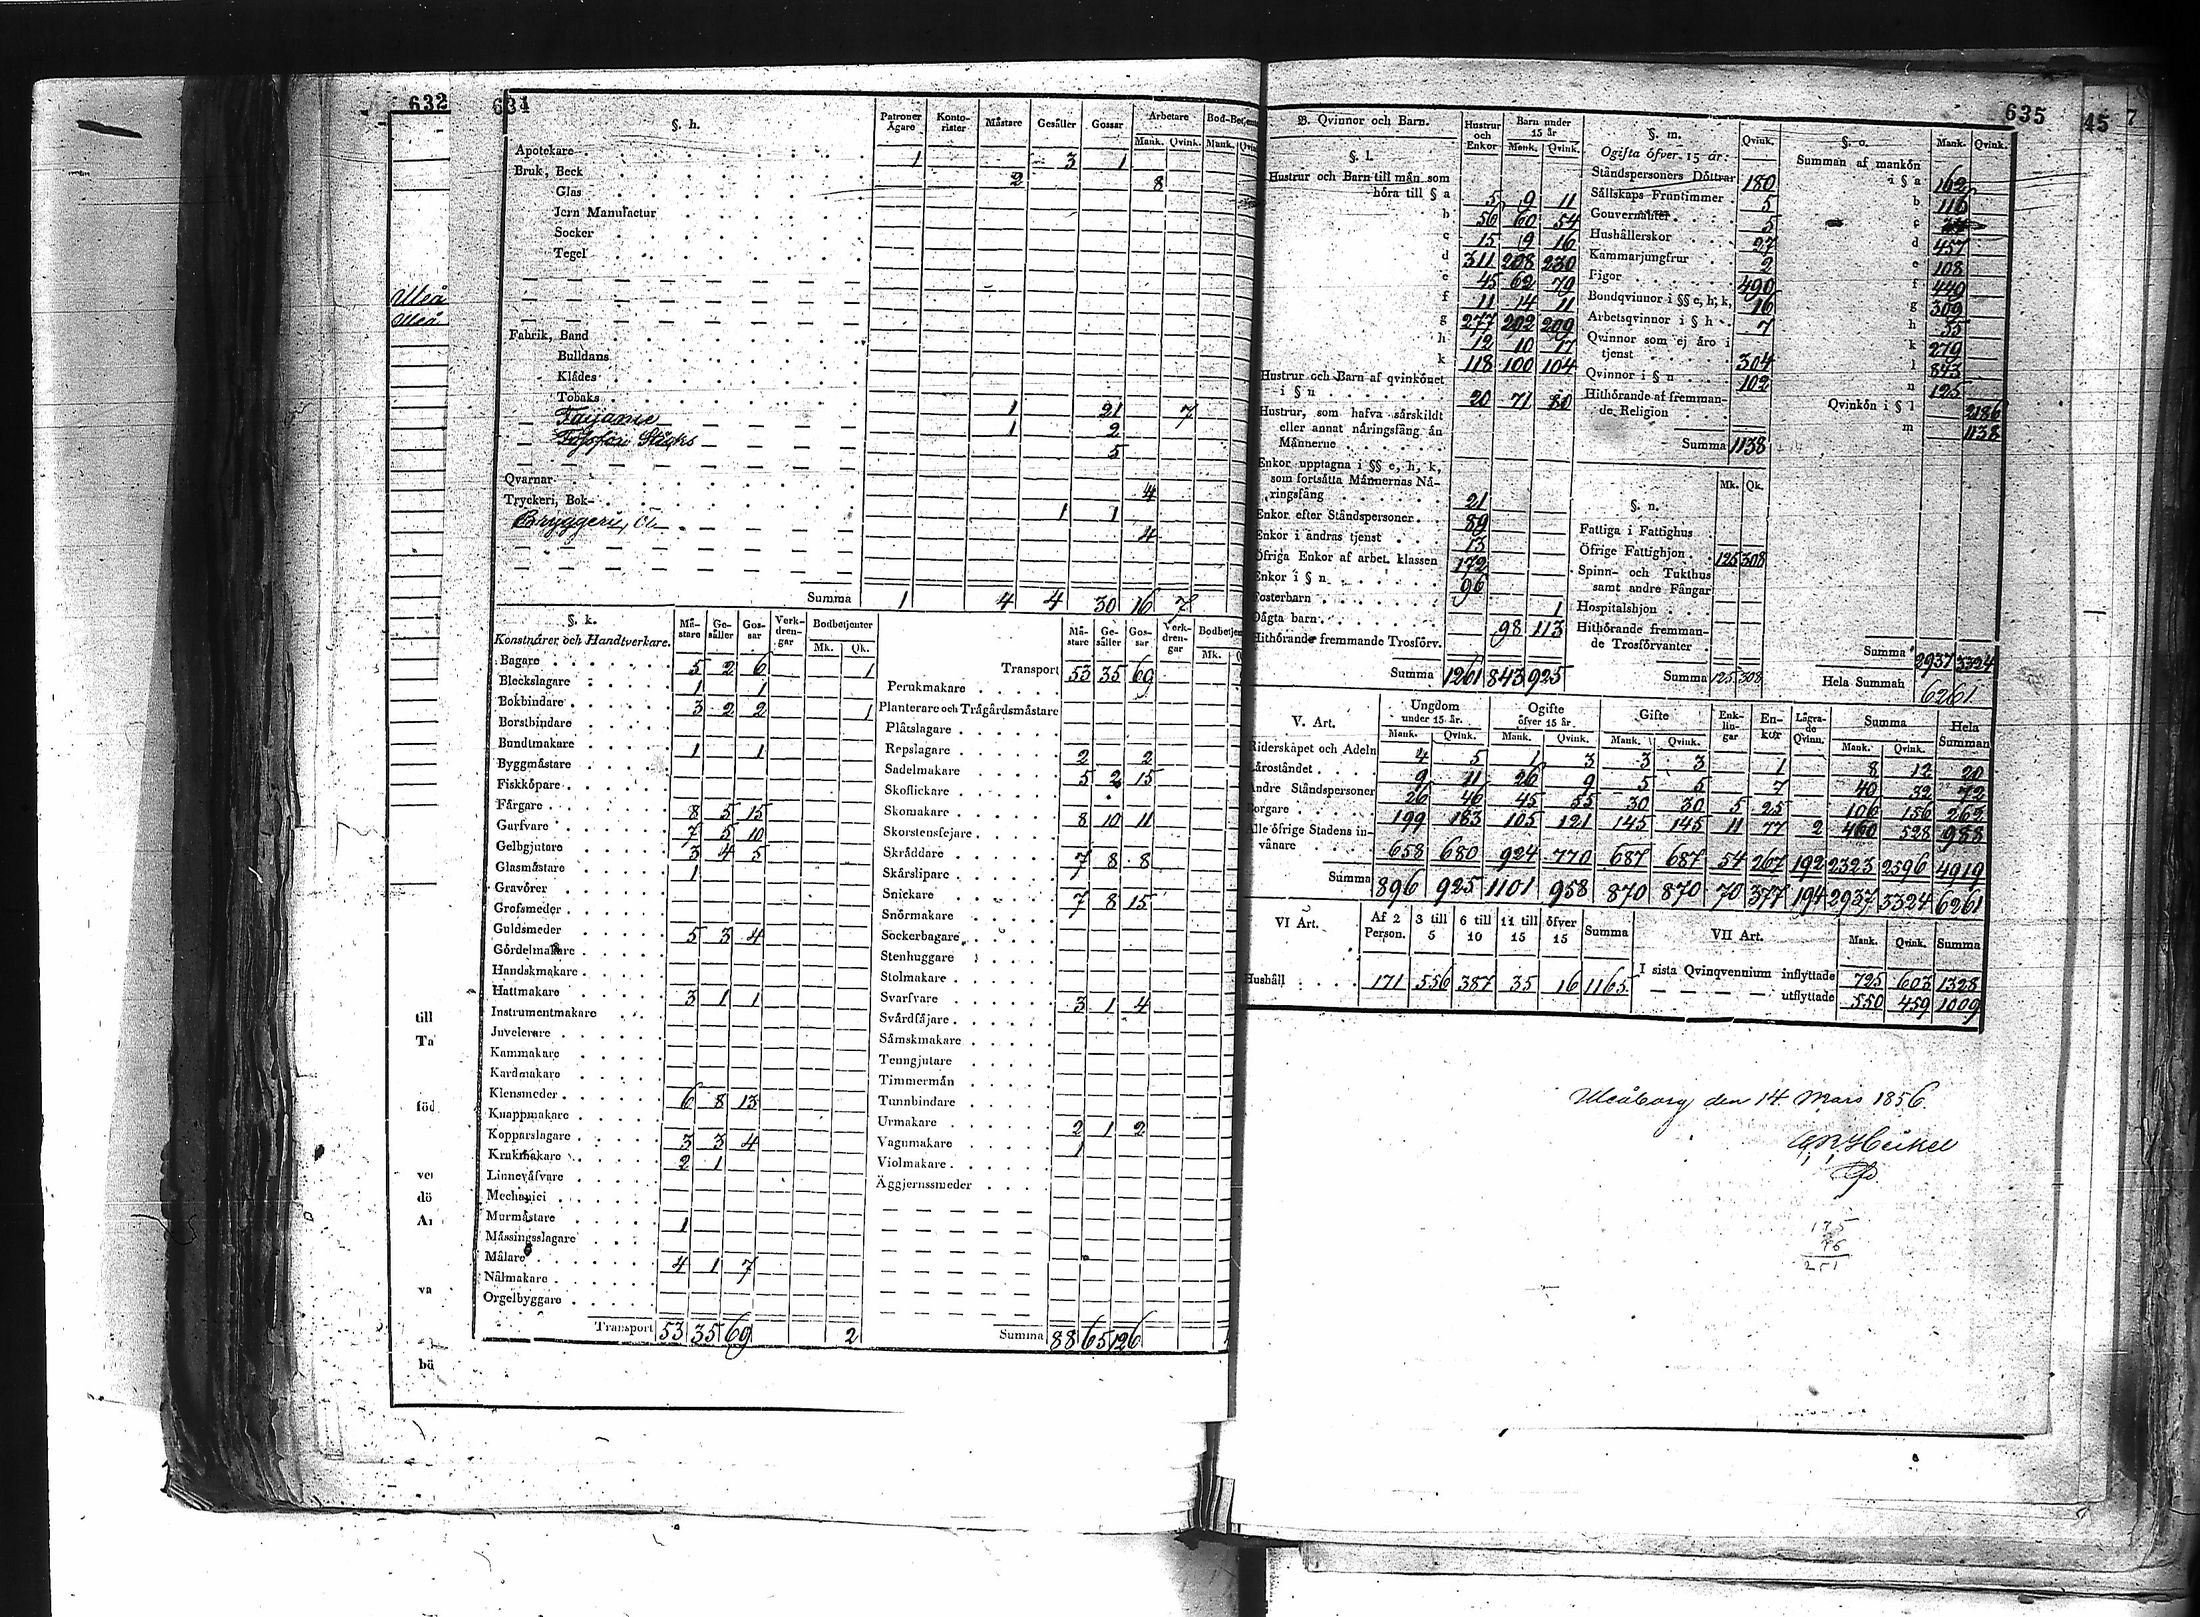 632
634
635
45
7
Uleå
Uleå
till
Ta
föd
ver
dö
Ar
va
bü
§. h. Patroner Ägare Konto-rister Mästare Gesäller Gossar Arbetare Mank. Qvink. Bod-Bet Mank.
Apotekare 1 3 1
Bruk, Beck 2 8
Glas
Jern Manufactur
Socker
Tegel
Fabrik, Band
Bulldans
Klädes
Tobaks 1 21 7
Fajance 1 2
5
Qvarnar 4
Tryckeri, Bok- 1 1
Bryggeri, Öl 4
Summa 1 4 4 30 16 7
§. k.
Konstnärer och Handtverkare. Mä-stare Ge-säller Gos-sar Verk-dren-gar Bodbetjenter Mk. Qk.
Bagare 5 2 6 1
Bleckslagare 1 1
Bokbindare 3 2 2 1
Borstbindare
Bundtmakare 1 1
Byggmästare
Fiskköpare
Färgare 8 5 15
Garfvare 7 5 10
Gelbgjutare 3 4 5
Glasmästare 1
Gravörer
Grofsmeder
Guldsmeder 5 3 4
Gördelmakare
Handskmakare
Hattmakare 3 1 1
Instrumentmakare
Juvelerare
Kammakare
Kardmakare
Klensmeder 6 8 13
Knappmakare
Kopparslagare 3 3 4
Krukmakare 2 1
Linneväfvare
Mechanici
Murmästare 1
Mässingsslagare
Målare 4 1 7
Nålmakare
Orgelbyggare
Transport 53 35 69 2
Mä-stare Ge-säller Gos-sar Verk-dren-gar Bodbetjen Mk.
Transport 53 35 69
Perukmakare
Planterare och Trägårdsmästare
Plåtslagare
Repslagare 2 2
Sadelmakare 5 2 15
Skoflickare
Skomakare 8 10 11
Skorstensfejare
Skräddare 7 8 8
Skärslipare
Snickare 7 8 15
Snörmakare
Sockerbagare
Stenhuggare
Stolmakare
Svarfvare 3 1 4
Svärdfäjare
Sämskmakare
Tenngjutare
Timmermän
Tunnbindare
Urmakare 2 1 2
Vagnmakare 1
Violmakare
Äggjernssmeder
Summa 88 65 126
B. Qvinnor och Barn. Hustrur och Enkor Barn under 15 år Mank. Qvink.
§. l.
Hustrur och Barn till män som
höra till § a 5 9 11
b 56 60 54
c 15 9 16
d 311 208 230
e 45 62 79
f 11 14 11
g 277 202 209
h 12 10 17
k 118 100 104
Hustrur och Barn af qvinkönet
i § n 20 71 80
Hustrur, som hafva särskildt
eller annat näringsfång än
Männerne
Enkor upptagna i §§ e, h, k,
som fortsätta Männernas Nä-
ringsfång 21
Enkor efter Ståndspersoner 89
Enkor i andras tjenst 13
Öfriga Enkor af arbet. klassen 172
Enkor i § n 96
Fosterbarn 1
Oägta barn 98 113
Hithörande fremmande Trosförv.
Summa 1261 843 925
§. m. Qvink.
Ogifta öfver 15 år:
Ståndspersoners Döttrar 180
Sällskaps Fruntimmer 5
Gouvernanter 5
Hushållerskor 27
Kammarjungfrur 2
Pigor 490
Bondqvinnor i §§ e, h, k, 16
Arbetsqvinnor i § h 7
Qvinnor som ej äro i
tjenst 304
Qvinnor i § n 102
Hithörande af fremman-
de Religion
Summa 1138
§. n. Mk. Qk.
Fattiga i Fattighus
Öfrige Fattighjon 125 308
Spinn- och Tukthus
samt andre Fångar
Hospitalshjon
Hithörande fremman-
de Trosförvanter
Summa 125 308
§. o. Mank. Qvink.
Summan af mankön
i § a 162
b 116
c
d 457
e 108
f 440
g 309
h 55
k 279
l 843
n 125
Qvinkön i § l 2186
m 1138
Summa 2937 3324
Hela Summan 6261
V. Art. Ungdom under 15 år. Mank. Qvink. Ogifte öfver 15 år Mank. Qvink. Gifte Mank. Qvink. Enk-lin-gar En-kor Lägra-de Qvinn. Summa Mank. Qvink. Hela Summan
Riderskapet och Adeln 4 5 1 3 3 3 1 8 12 20
Läroståndet 9 11 26 9 5 5 7 40 32 72
Andre Ståndspersoner 26 46 45 55 30 30 5 25 106 156 262
Borgare 199 183 105 121 145 145 11 77 2 460 528 988
Alle öfrige Stadens in-
vånare 658 680 924 770 687 687 54 267 192 2323 2596 4919
Summa 896 925 1101 958 870 870 70 377 194 2937 3324 6261
VI Art. Af 2 Person. 3 till 5 6 till 10 11 till 15 öfver 15 Summa
Hushåll 171 556 387 35 16 1165
VII Art. Mank. Qvink. Summa
I sista Qvinqvennium inflyttade 725 603 1328
— — — — utflyttade 550 459 1009
Uleåborg den 14 Mars 1856.
Heikel
175
76
251